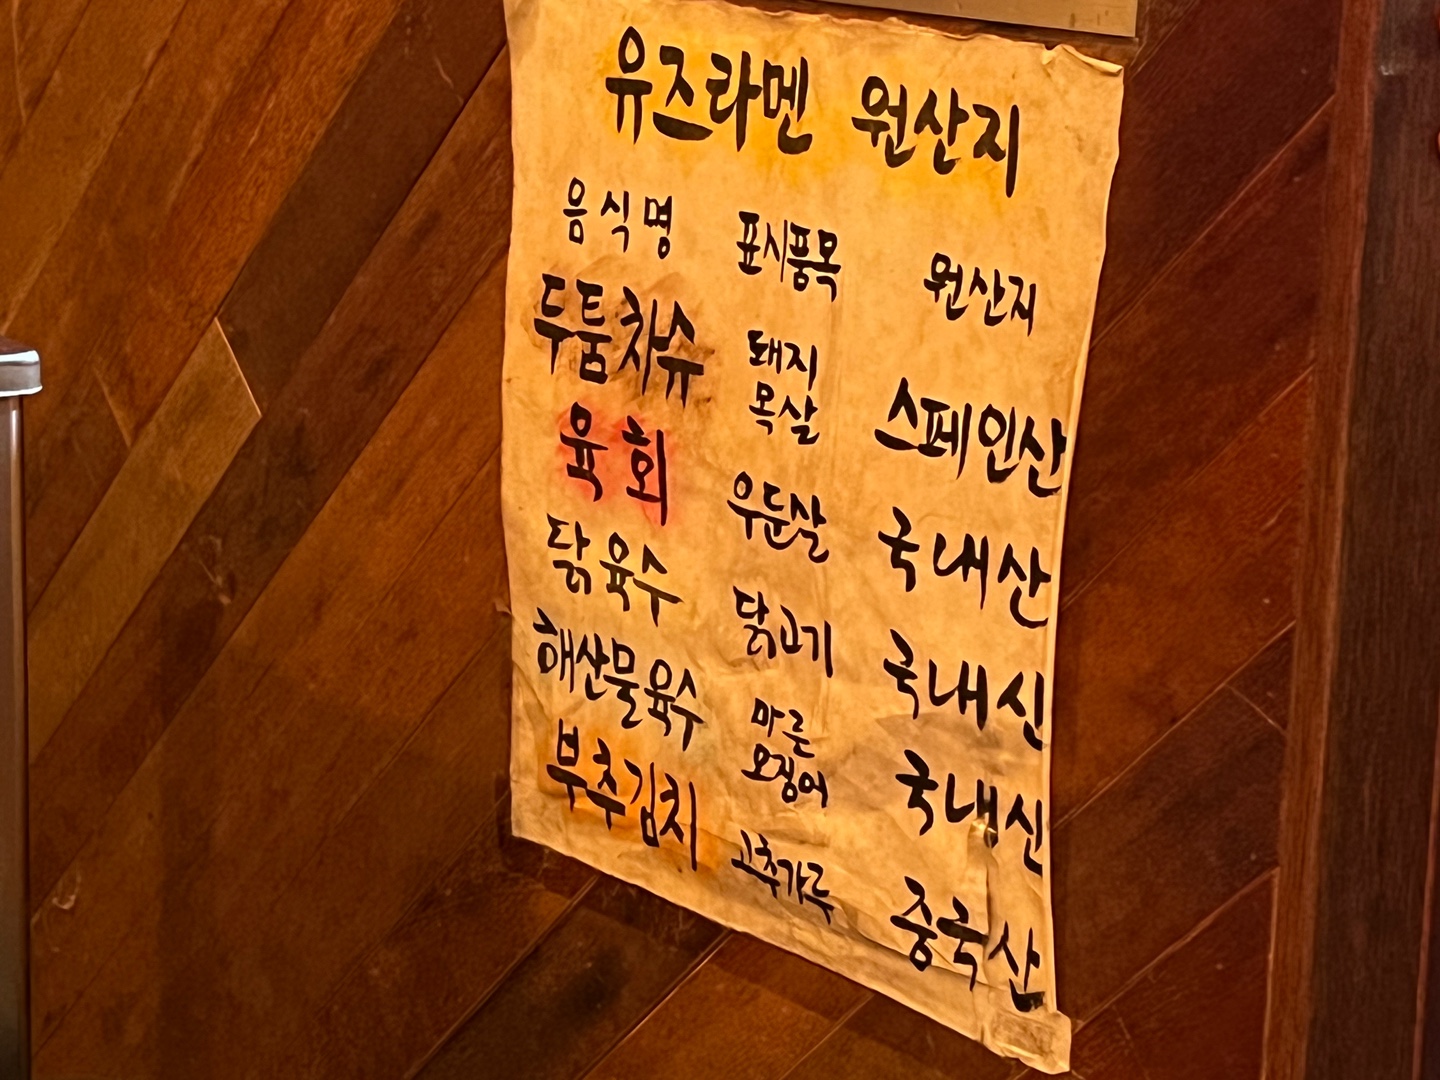 유즈라멘 원산지
음식명 표시품목 원산지
두툼차슈 돼지 목살 스페인산
육회 우둔살 국내산
닭육수 닭고기 국내산
해산물육수 마른 오징어 국내산
부추김치 고추가루 중국산